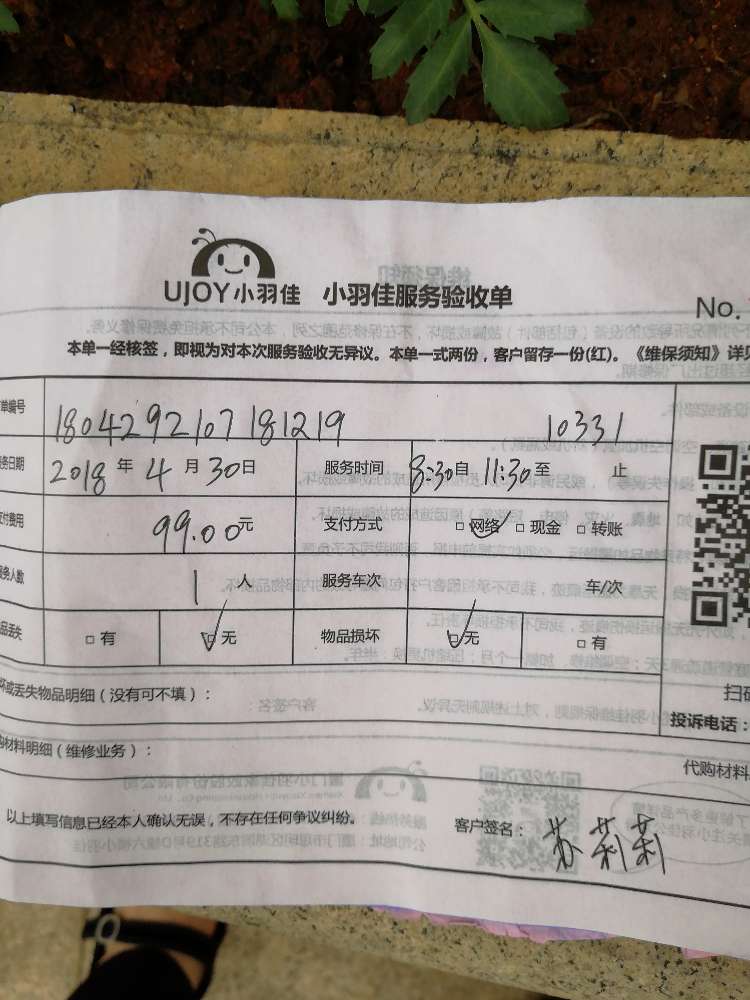 UJOY小羽佳 小羽佳服务验收单
No.
本单一经核签，即视为对本次服务验收无异议。本单一式两份，客户留存一份(红)。《维保须知》详见
单编号 1804292107181219 10331
务日期 2018 年 4 月 30 日 服务时间 8:30 自 11:30 至 止
付费用 99.00 元 支付方式 □ 网络 □ 现金 □ 转账
服务人数 1 人 服务车次 车/次
品丢失 □ 有 □ 无 物品损坏 □ 无 □ 有
坏或丢失物品明细（没有可不填）：
扫码
投诉电话：
购材料明细（维修业务）：
代购材料
以上填写信息已经本人确认无误，不存在任何争议纠纷。 客户签名： 苏莉莉